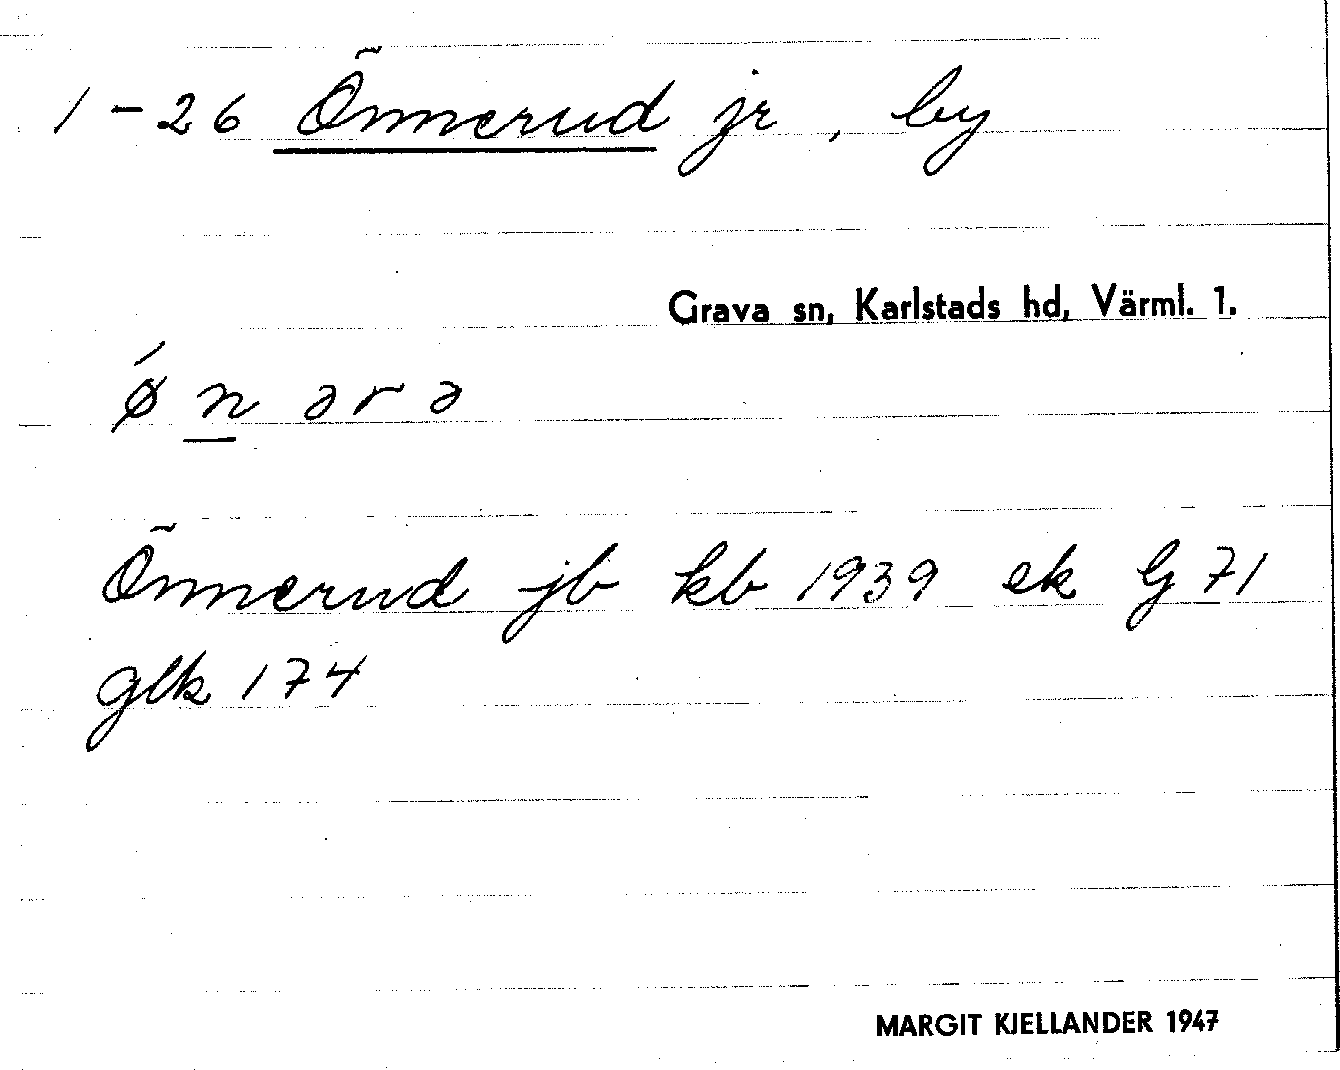 1-26 Önnerud jr, by
Grava sn, Karlstads hd, Värml. 1.
ǿ n ə r ə
Önnerud jb kb 1939 ek G 71
glk 174
MARGIT KJELLANDER 1947